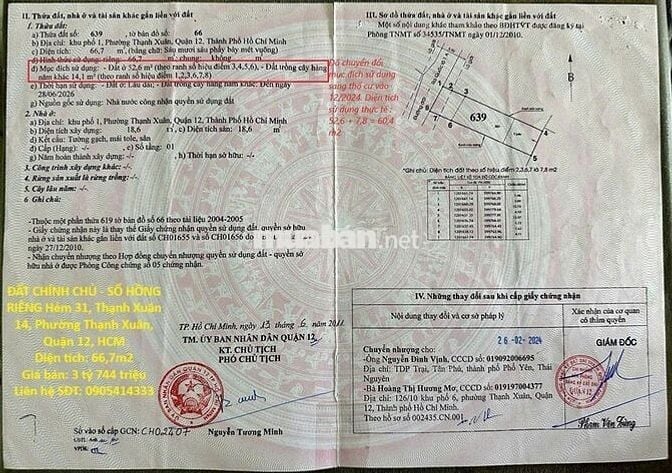 II. Thửa đất, nhà ở và tài sản khác gắn liền với đất
1. Thửa đất:
a) Thửa đất số: 639 , tờ bản đồ số: 66
b) Địa chỉ: khu phố 1, Phường Thạnh Xuân, Quận 12, Thành Phố Hồ Chí Minh
c) Diện tích: 66,7 m², (bằng chữ: Sáu mươi sáu phẩy bảy mét vuông)
d) Hình thức sử dụng: riêng: 66,7 m²; chung: không m²
đ) Mục đích sử dụng: - Đất ở 52,6 m² (theo ranh số hiệu điểm 3,4,5,6), - Đất trồng cây hàng
năm khác 14,1 m² (theo ranh số hiệu điểm 1,2,3,6,7,8)
e) Thời hạn sử dụng: - Đất ở: Lâu dài; - Đất trồng cây hàng năm khác: Đến ngày
28/06/2026
g) Nguồn gốc sử dụng: Nhà nước công nhận quyền sử dụng đất
2. Nhà ở:
a) Địa chỉ: khu phố 1, Phường Thạnh Xuân, Quận 12, Thành Phố Hồ Chí Minh
b) Diện tích xây dựng: 18,6 m² c) Diện tích sàn: 18,6 m²
d) Kết cấu: Tường gạch, mái tole, sàn
đ) Cấp (Hạng): -/- e) Số tầng: 01
g) Năm hoàn thành xây dựng: -/- h) Thời hạn sở hữu: -/-
3. Công trình xây dựng khác: -/-
4. Rừng sản xuất là rừng trồng: -/-
5. Cây lâu năm: -/-
6. Ghi chú:
-Thuộc một phần thửa 619 tờ bản đồ số 66 theo tài liệu 2004-2005
- Giấy chứng nhận này là thay thế Giấy chứng nhận quyền sử dụng đất, quyền sở hữu
nhà ở và tài sản khác gắn liền với đất số CH01655 và số CH01656 do
27/12/2010.
- Giấy chứng nhận theo Hợp đồng chuyển nhượng quyền sử dụng đất - quyền sở
hữu nhà ở được Phòng Công chứng số 05 chứng nhận.
ĐẤT CHÍNH CHỦ - SỔ HỒNG
RIÊNG Hẻm 31, Thạnh Xuân
14, Phường Thạnh Xuân,
Quận 12, HCM
Diện tích: 66,7m2
Giá bán: 3 tỷ 744 triệu
Liên hệ SĐT: 0905414333
TP. Hồ Chí Minh, ngày 13 tháng 6 năm 2011
TM. ỦY BAN NHÂN DÂN QUẬN 12
KT. CHỦ TỊCH
PHÓ CHỦ TỊCH
Nguyễn Tường Minh
Số vào sổ cấp GCN: CH02407
Đã chuyển đổi
mục đích sử dụng
sang thổ cư vào
12/2024. Diện tích
sử dụng thực tế :
52,6 + 7,8 = 60,4
m2
muaban.net
III. Sơ đồ thửa đất, nhà ở và tài sản khác gắn liền với đất
Một số nội dung khác tham khảo theo BĐHTVT được đăng ký tại
Phòng TNMT số 34535/TNMT ngày 01/12/2010.
B
639
*Ghi chú: Diện tích đất theo số hiệu điểm 2,3,6,7 là 7,8 m2)
IV. Những thay đổi sau khi cấp giấy chứng nhận
Nội dung thay đổi và cơ sở pháp lý
Xác nhận của cơ quan
có thẩm quyền
26-02-2024
GIÁM ĐỐC
Chuyển nhượng cho:
Ông Nguyễn Đình Vịnh, CCCD số: 019092006695
Địa chỉ: TDP Trại, Tân Phú, thành phố Phổ Yên, Thái
Nguyên
Bà Hoàng Thị Hương Mơ, CCCD số: 019197004377
Địa chỉ: 126/10 khu phố 6, phường Thạnh Xuân, Quận
12, Thành phố Hồ Chí Minh.
Theo hồ sơ số 002435.CN.001
Phạm Văn Dũng